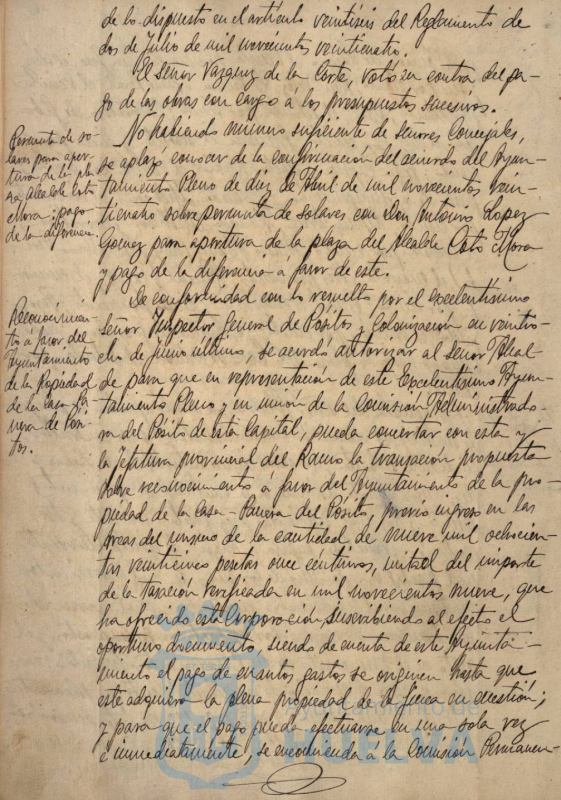 de lo dispuesto en el artículo veintiséis del Reglamento de
dos de Julio de mil novecientos veinticuatro.
El señor Vazquez de la Corte, votó en contra del pa-
go de las obras con cargo á los presupuestos sucesivos.
Permuta de so-
lares para aper-
tura de la pla-
za Alcalde Coto
Mora: pago
de la diferencia.
No habiendo número suficiente de señores Concejales,
se aplazó conocer de la confirmación del acuerdo del Ayun-
tamiento Pleno de diez de Abril de mil novecientos vein-
ticuatro sobre permuta de solares con Don Antonio Lopez
Gomez para apertura de la plaza del Alcalde Coto Mora
y pago de la diferencia á favor de este.
Reconocimien-
to á favor del
Ayuntamiento
de la Propiedad
de la casa Pa-
nera de Pósi-
tos.
De conformidad con lo resuelto por el excelentísimo
señor Inspector General de Pósitos y Colonización en veintio-
cho de Junio último, se acordó autorizar al señor Alcal-
de para que en representación de este Excelentísimo Ayun-
tamiento Pleno y en unión de la Comisión Administrado-
ra del Pósito de esta Capital, pueda concertar con esta y
la Jefatura provincial del Ramo la transacion propuesta
sobre reconocimiento á favor del Ayuntamiento de la pro-
piedad de la Casa-Panera del Pósito, previo ingreso en las
arcas del mismo de la cantidad de nueve mil ochocien-
tas veinticinco pesetas once céntimos, mitad del importe
de la tasación verificada en mil novecientos nueve, que
ha ofrecido esta Corporación suscribiendo al efecto el
oportuno documento, siendo de cuenta de este Ayunta-
miento el pago de cuantos gastos se originen hasta que
este adquiera la plena propiedad de la finca en cuestión;
y para que el pago pueda efectuarse en una sola vez
é inmediatamente, se encomienda á la Comisión Permanen-